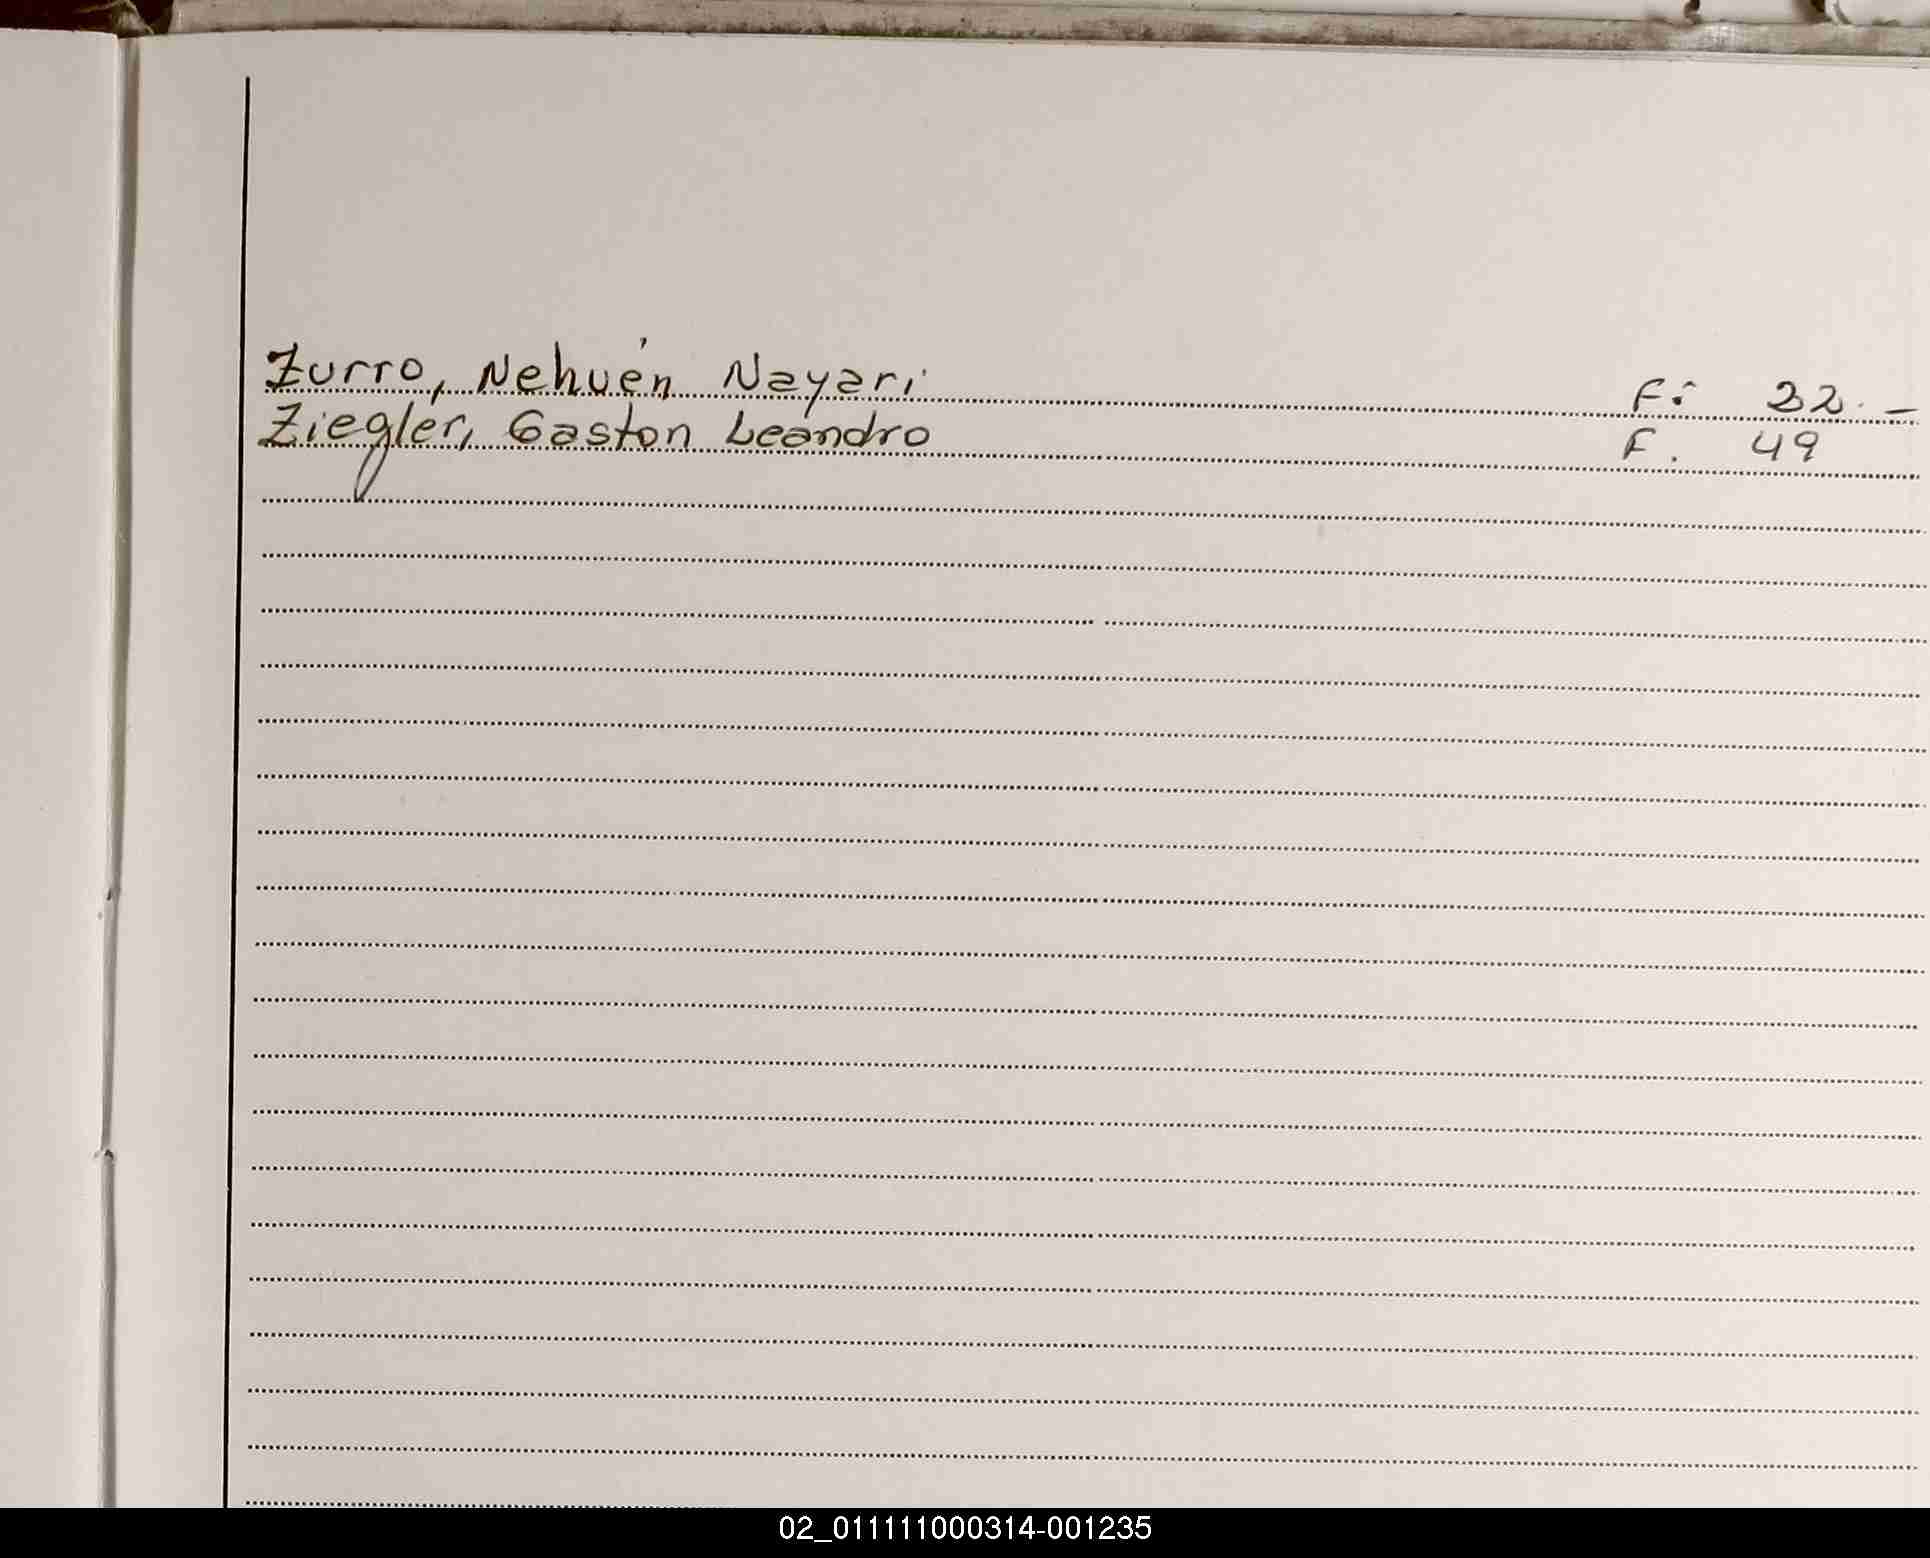 Zurro, Nehuén Nayari F: 32.-
Ziegler, Gaston Leandro F. 49
02_011111000314-001235